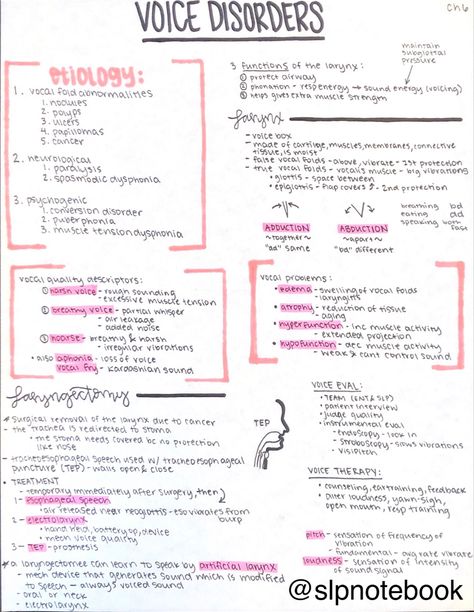 VOICE DISORDERS
Ch 6
etiology:
1. vocal fold abnormalities
1. nodules
2. polyps
3. ulcers
4. papillomas
5. cancer
2. neurological
1. paralysis
2. spasmodic dysphonia
3. psychogenic
1. conversion disorder
2. puberphonia
3. muscle tension dysphonia
maintain
subglottal
pressure
3 functions of the larynx:
① protect airway
② phonation - resp energy → sound energy (voicing)
③ helps gives extra muscle strength
larynx
- voice box
- made of cartilage, muscles, membranes, connective
tissue, is moist
- false vocal folds - above, vibrate - 1st protection
- true vocal folds - vocalis muscle - big vibrations
• glottis - space between
• epiglottis - flap covers & 2nd protection
ADDUCTION
~together~
"ad" same
ABDUCTION
~apart~
"bd" different
breathing bd
eating ad
speaking both
fast
vocal quality descriptors:
① harsh voice - rough sounding
- excessive muscle tension
② breathy voice - partial whisper
- air leakage
- added noise
③ hoarse - breathy & harsh
- irregular vibrations
• also aphonia - loss of voice
vocal fry - kardashian sound
vocal problems:
• edema - swelling of vocal folds
- laryngitis
• atrophy - reduction of tissue
- aging
• hyperfunction - inc muscle activity
- extended projection
• hypofunction - dec muscle activity
- weak & cant control sound
laryngectomy
* surgical removal of the larynx due to cancer
- the trachea is redirected to stoma
• the stoma needs covered bc no protection
like nose
- tracheoesophageal speech used w/ tracheoesophageal
puncture (TEP) - walls open & close
TEP
• TREATMENT
- temporary immediately after surgery, then
1- esophageal speech
• air released near neoglottis - eso vibrates from
burp
2- electrolarynx
• hand held, battery op, device
- mech voice quality
3- TEP - prosthesis
* a laryngectomee can learn to speak by artificial larynx
- mech device that generates sound which is modified
to speech - always voiced sound
- oral or neck
- electrolarynx
VOICE EVAL:
• TEAM (ENT & SLP)
• patient interview
• judge quality
• instrumental eval
- endoscopy - look in
- stroboscopy - slows vibrations
- visipitch
VOICE THERAPY:
• counseling, ear training, feedback
• alter loudness, yawn-sigh,
open mouth, resp training
pitch - sensation of frequency of
vibration
- fundamental - avg rate vibrate
loudness - sensation of intensity
of sound signal
@slpnotebook